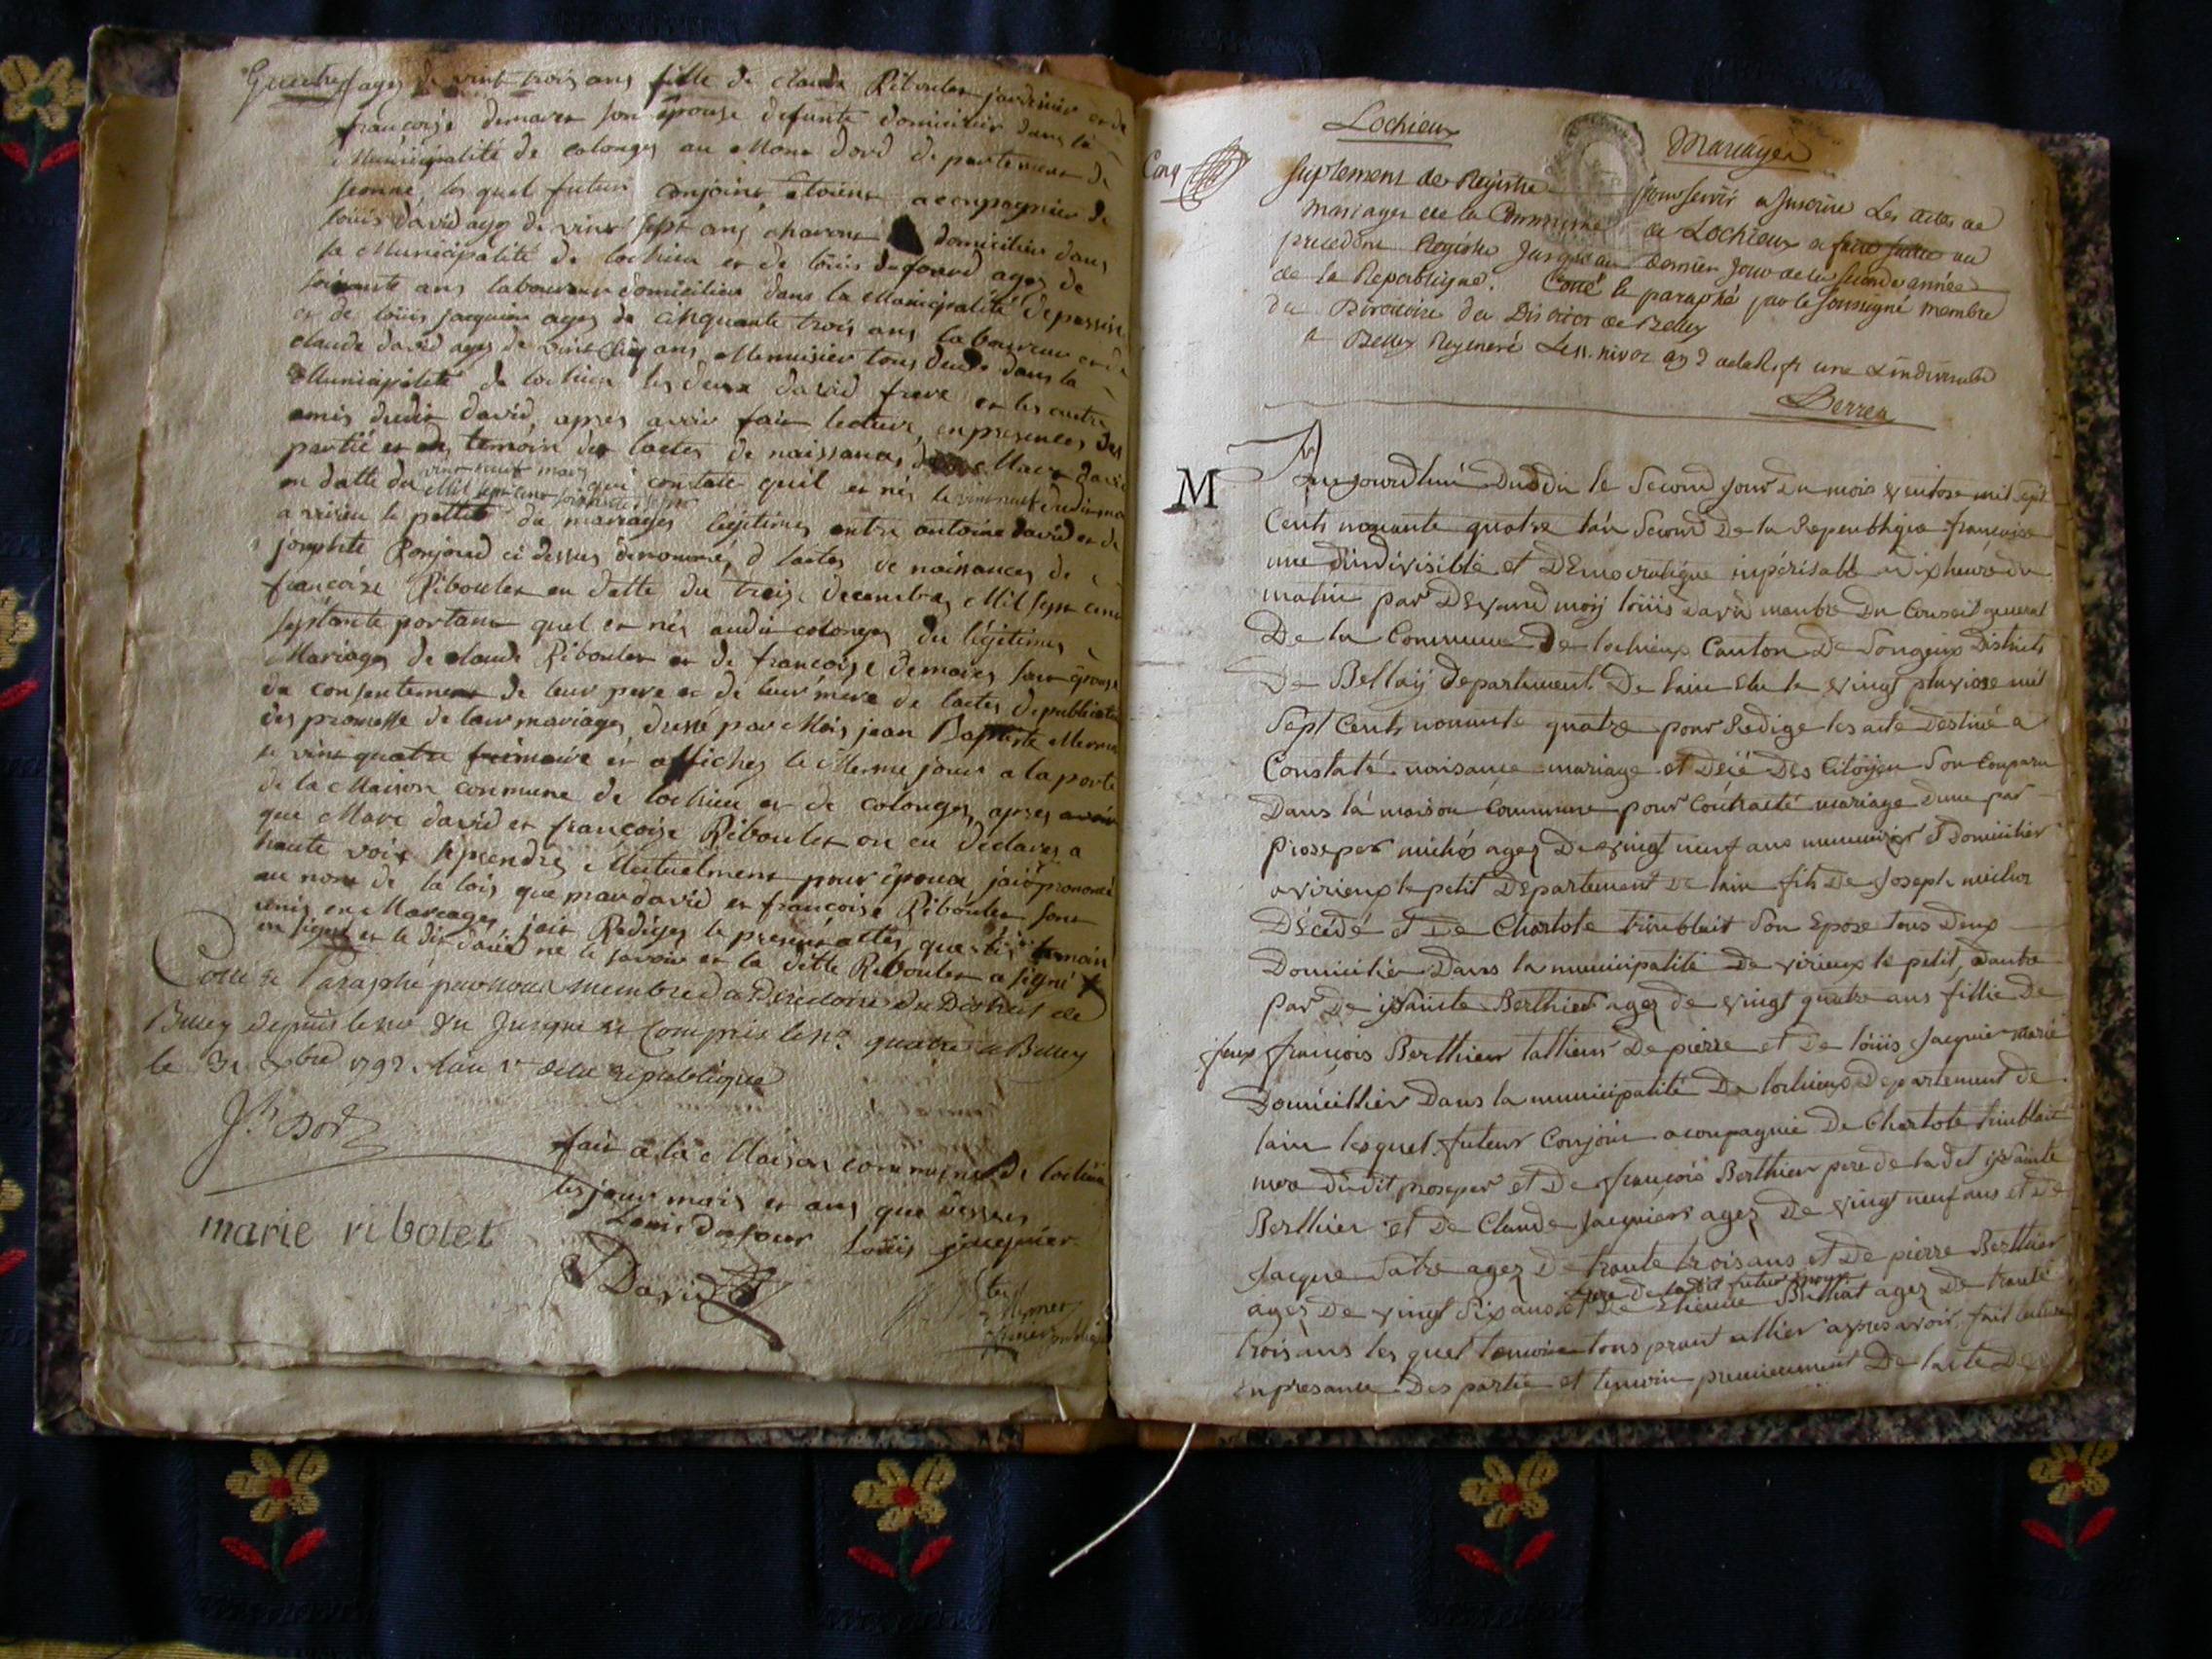 Quatre
agez de vint trois ans fille de claude Riboulet jardinier et de
francoise demares son epouse defunte domicilier dans la
Municipalité de colonges au Mont dord departement de
lesquel futurs conjoins etoient acompagnier de
louis david agez de vint sept ans charon domicilier dans
la Municipalité de lochieu et de louis dufourd agez de
soixante ans laboureur domicilier dans la Municipalité de
et de louis jacquier agez de cinquante trois ans laboureur et de
claude david agez de vint cinq ans Menuisier tous deux dans la
Municipalité de lochieu les deux david frere et les autre
amis dudit david, apres avoir fait lecture en presences des
partie et des temoins des lactes de naissances de Marc david
en datte du vint neuf mars qui constate quil et nés le vint neuf dudit
Mil sept cent soixante
a virieu le petit du mariages legitimes entre antoine david et de
josephte Bonjourd ci dessus denommé, d lactes de naissances de
francoise Riboulet en datte du treize decembres Mil sept cent
septante portant quel et nés audit colonges du légitimes
Mariages de claude Riboulet et de francoise demares son epouse
du consentement de leur pere et de leur mere de lactes de publication
des promesse de leur mariages dressé par Mois jean Baptiste
le vint quatre frimaire et affichez le Meme jour a la porte
de la Maison commune de lochieu et de colonges, apres avoir
que Marc david et francoise Riboulet on eu déclares a
haute voix se prendres Mutuelment pour epoux, jaiö prononcé
au nom de la lois que marc david et francoise Riboulet sont
unis en Mariages, jait Rediges le present actes que les temoin
on signes et le dit david ne le savoir et la ditte Riboulet a signé
Cotté et Paraphé par nous membre du Directoire du District de
Belley depuis le no un jusque et compris le no quatre a Belley
le 31 Xbre 1792. lan 1er de la république
fait a la Maison commune de lochieu
les jour mois et ans que dessus
Louis dufour Louis jacquier
marie ribolet
David
Lochieux Mariages
Cinq
Suplement de Registre pour servir a Inscrire Les actes de
mariages de la Commune de Lochieux a faire suite au
precedent Registre jusqu'au dernier jour de la seconde année
de la Republique. Cotté & paraphé par le soussigné membre
du Directoire du District de Belley
a Belley Regeneré Le 11 nivoz an 2 de la Rep. une & indivisible
Berrea
M
Aujourdhui Duodi le Second jour du mois ventose mil sept
Cents nonante quatre lan Second De la Republiqie francoise
une Dindivisible et Démocratique inpérisable a dix heure du
matin par Devand moij loüis David menbre Du Conseil general
De la Commune De lochieux Canton De Songeux Districts
De Bellaij Departement De lain Elu le vingt pluviose mil
Sept Cents nonante quatre pour Redige les acte Destiné a
Constaté naisance mariage et Décé Des Citoÿen Son Conparu
Dans la maison Commune pour Contracté mariage Dune par
prosper michos agez De vingt neuf ans menuisier et Domicilier
a virieux le petit Departement De lain fils De Joseph michos
Décédé et De Charlote trinblait Son Epose tous Deux
Domicilier Dans la municipalité De virieux le petit, Dautre
par De Bertthier agez de vingt quatre ans fillie De
feux francois Bertthier De pierre et De loüis Jacquier marié
Domicillier Dans la municipalité De lochieux Departement de
lain lesquel futeur Conjoin aconpagnié De Charlote trinblait
mere dudit prosper et De francois Berthier pere de ladet
Berthier et De Claude Jacquier agez De vingt neuf ans et De
Jacque agez De trante trois ans et De pierre Berthier
frere de ladit futur epoux
agez De vingt six ans et De Etienne Berthat agez De trante
trois ans les quel temoin tons apres avoir fait lecture
en presance Des partie et temoin premierement De lacte De